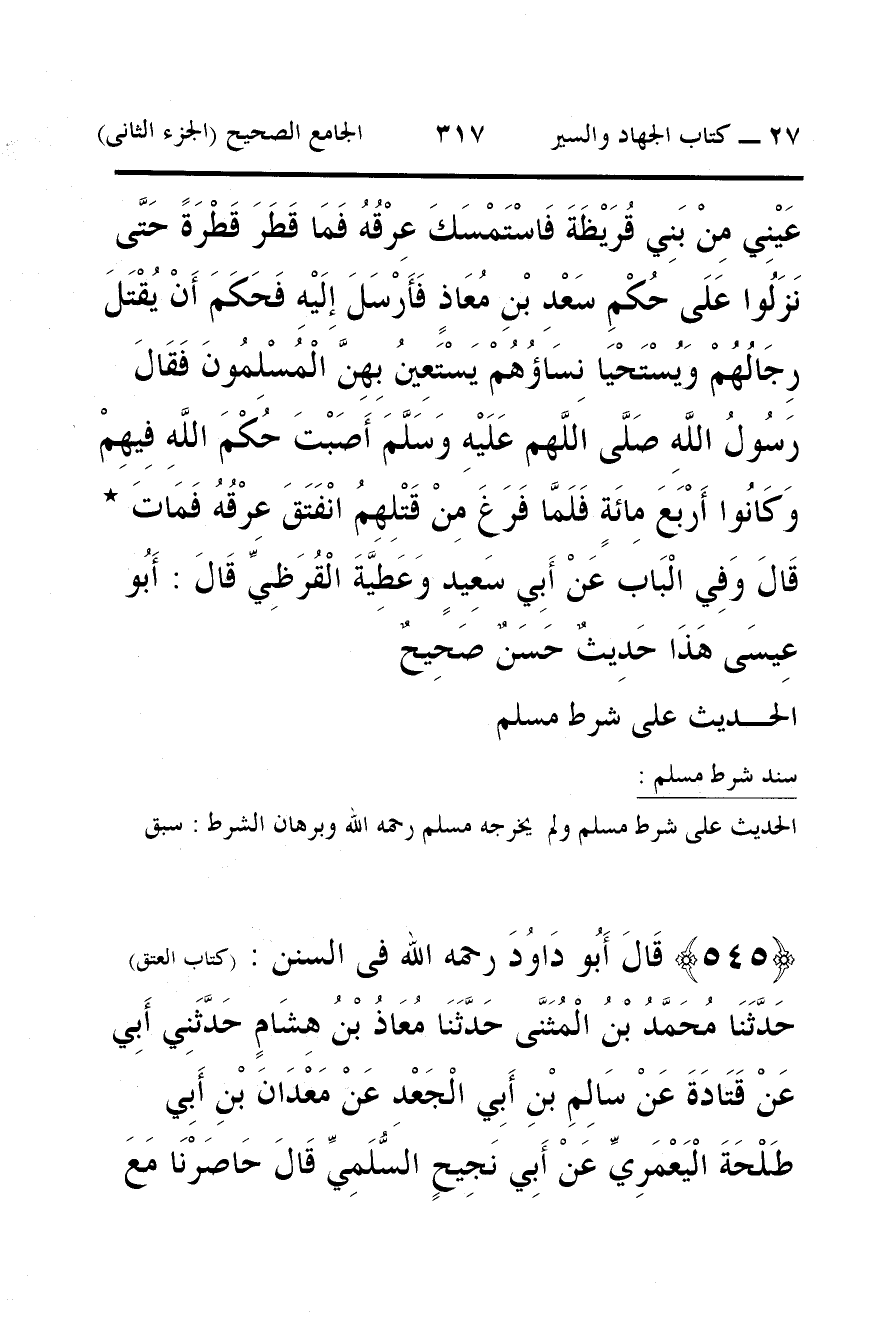 ٢٧ ــ كتاب الجهاد والسير ٣١٧ الجامع الصحيح (الجزء الثانى)
عَيْنِي مِنْ بَنِي قُرَيْظَةَ فَاسْتَمْسَكَ عِرْقُهُ فَمَا قَطَرَ قَطْرَةً حَتَّى
نَزَلُوا عَلَى حُكْمِ سَعْدِ بْنِ مُعَاذٍ فَأَرْسَلَ إِلَيْهِ فَحَكَمَ أَنْ يُقْتَلَ
رِجَالُهُمْ وَيُسْتَحْيَا نِسَاؤُهُمْ يَسْتَعِينُ بِهِنَّ الْمُسْلِمُونَ فَقَالَ
رَسُولُ اللَّهِ صَلَّى اللَّهم عَلَيْهِ وَسَلَّمَ أَصَبْتَ حُكْمَ اللَّهِ فِيهِمْ
وَكَانُوا أَرْبَعَ مِائَةٍ فَلَمَّا فَرَغَ مِنْ قَتْلِهِمُ انْفَتَقَ عِرْقُهُ فَمَاتَ *
قَالَ وَفِي الْبَاب عَنْ أَبِي سَعِيدٍ وَعَطِيَّةَ الْقُرَظِيِّ قَالَ : أَبُو
عِيسَى هَذَا حَدِيثٌ حَسَنٌ صَحِيحٌ
الحـــديث على شرط مسلم
سند شرط مسلم :
الحديث على شرط مسلم ولم يخرجه مسلم رحمه الله وبرهان الشرط : سبق
﴿٥٤٥﴾ قَالَ أَبُو دَاوُدَ رحمه الله فى السنن : (كتاب العتق)
حَدَّثَنَا مُحَمَّدُ بْنُ الْمُثَنَّى حَدَّثَنَا مُعَاذُ بْنُ هِشَامٍ حَدَّثَنِي أَبِي
عَنْ قَتَادَةَ عَنْ سَالِمِ بْنِ أَبِي الْجَعْدِ عَنْ مَعْدَانَ بْنِ أَبِي
طَلْحَةَ الْيَعْمَرِيِّ عَنْ أَبِي نَجِيحٍ السُّلَمِيِّ قَالَ حَاصَرْنَا مَعَ